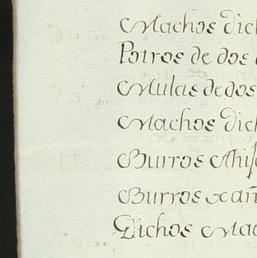 Machos dich
Potros de dos
Mulas de dos
Machos dich
Burros
Burros
Dichos Mac